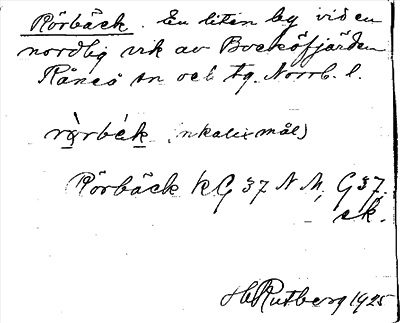 Rörbäck. En liten by vid en
nordlig vik av Bocköfjärden
Råneå sn och tg. Norrb. l.
rö̀rbék (nkalix mål)
Rörbäck KG 37 N M, G 37.
sk.
HRutberg 1925